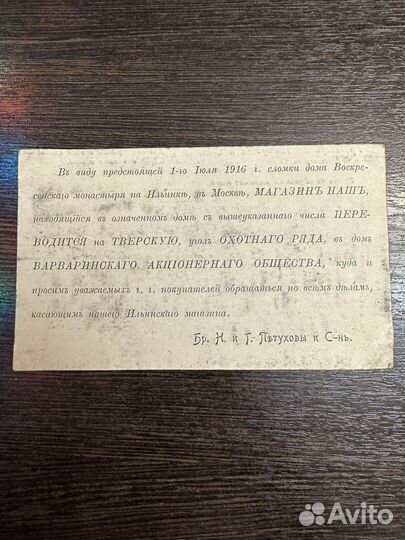 Въ виду предстоящей 1-го Іюля 1916 г. сломки дома Воскре-
сенскаго монастыря на Ильинкѣ, въ Москвѣ, МАГАЗИНЪ НАШЪ,
находящійся въ означенномъ домѣ съ вышеуказаннаго числа ПЕРЕ-
ВОДИТСЯ на ТВЕРСКУЮ, уголъ ОХОТНАГО РЯДА, въ домъ
ВАРВАРИНСКАГО АКЦІОНЕРНАГО ОБЩЕСТВА, куда и
просимъ уважаемыхъ г. г. покупателей обращаться по всѣмъ дѣламъ,
касающимъ нашего Ильинскаго магазина.
Бр. Н. и Г. Пѣтуховы и С-нъ.
Avito